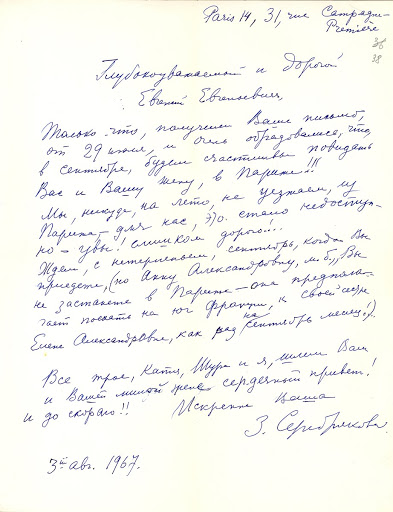 Paris 14, 31, rue Campagne-
Première
38
Глубокоуважаемый и дорогой
Евгений Евгеньевич,
Только что, получили Ваше письмо,
от 29 июля, и очень обрадовались, что,
в сентябре, будем счастливы повидать
Вас и Вашу жену, в Париже!!!
Мы, никуда, на лето, не уезжаем, из
Парижа – для нас, это стало недоступ-
но – увы! слишком дорого!..
Ждем, с нетерпением, сентябрь, когда Вы
приедете, (но Анну Александровну, м.б., Вы
не застанете в Париже – она предпола-
гает поехать на юг Франции, к своей сестре
Елене Александровне, как раз на сентябрь месяц!).
Все трое, Катя, Шура и я, шлем Вам
и Вашей милой жене сердечный привет!
и до скорого!! Искренне Ваша
З. Серебрякова
3го авг. 1967.